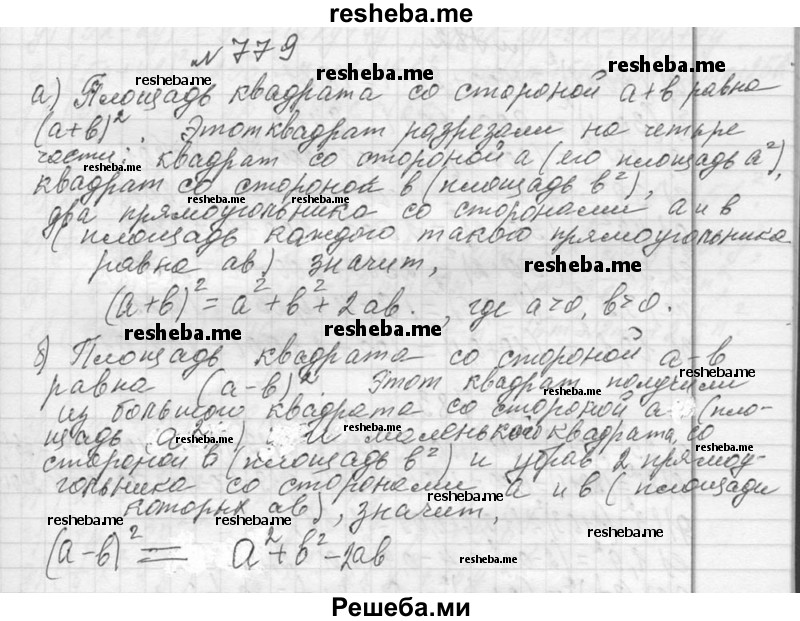 resheba.me
№ 779
resheba.me resheba.me resheba.me
а) Площадь квадрата со стороной а+в равна
(а+в)². Этот квадрат разрезали на четыре
части: квадрат со стороной а (его площадь а²),
resheba.me
квадрат со стороной в (площадь в²),
resheba.me resheba.me
два прямоугольника со сторонами а и в
(площадь каждого такого прямоугольника
равна ав) значит,
resheba.me
(а+в)² = а² + в² + 2ав. , где а>0, в>0.
resheba.me resheba.me
б) Площадь квадрата со стороной а-в
resheba.me
равна (а-в)². Этот квадрат получили
resheba.me
из большого квадрата со стороной а (пло-
щадь а²) и маленького квадрата, со
resheba.me resheba.me
стороной в (площадь в²) и убрав 2 прямоу-
гольника со сторонами а и в (площади
resheba.me
которых ав), значит,
resheba.me resheba.me resheba.me
(а-в)² = а² + в² - 2ав
resheba.me
Решеба.ми